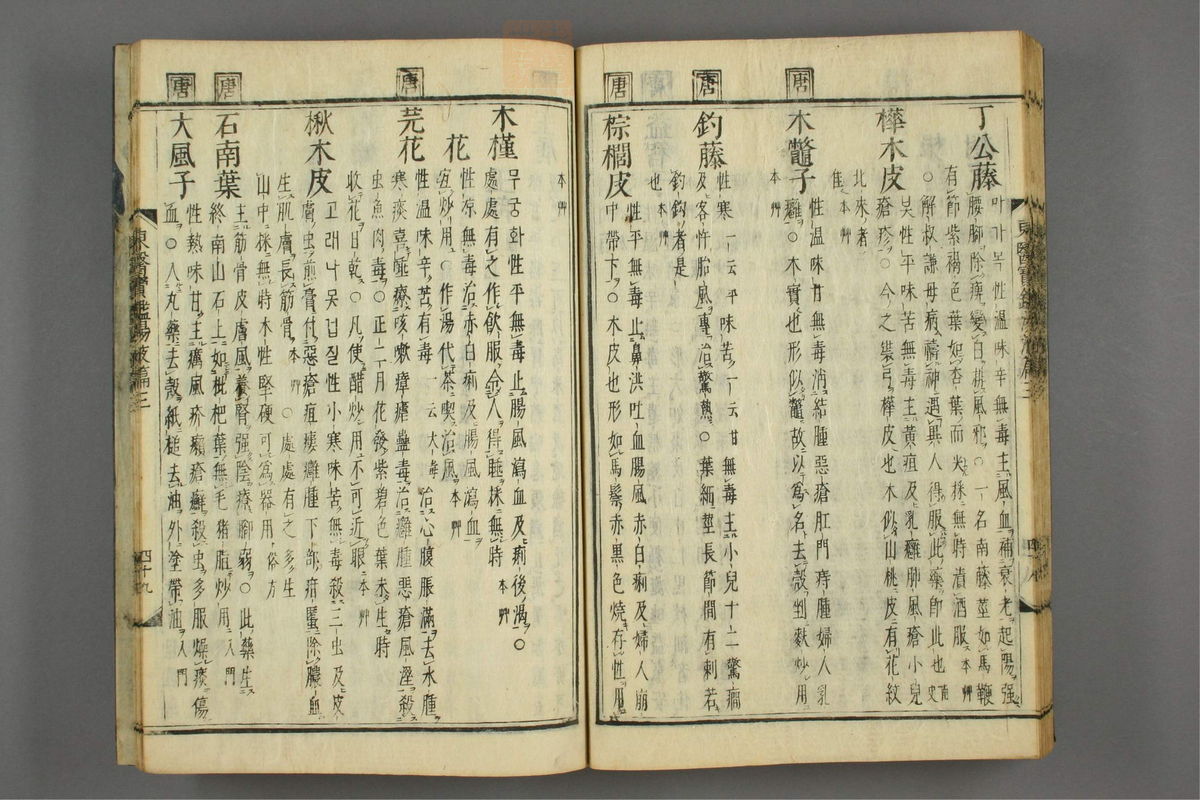 丁公藤
마마목性温味辛無毒主風血補衰老起陽强
腰脚除痺變白排風邪○一名南藤莖如馬鞭
有節紫褐色葉如杏葉而尖採無時漬酒服本艸
○解叔謙母病禱神遇異人得服此藥即此也南史
樺木皮
봇性平味苦無毒主黃疸及乳癰肺風瘡小兒
瘡疹○今之裝弓樺皮也木似山桃皮有花紋
北來者佳本艸
唐
木鼈子
性温味甘無毒消結腫惡瘡肛門痔腫婦人乳
癰○木實也形似鼈故以爲名去殼剉麩炒用
本艸
唐
釣藤
性寒一云平味苦一云甘無毒主小兒十二驚癎
及客忤胎風專治驚熱○葉細莖長節間有刺若
釣鈎者是也本艸
唐
棕櫚皮
性平無毒止鼻洪吐血腸風赤白痢及婦人崩
中帶下○木皮也形如馬鬃赤黒色燒存性用
本艸
木槿
무궁화性平無毒止腸風瀉血及痢後渴○
處處有之作飮服令人得睡採無時本艸
花
性凉無毒治赤白痢及腸風瀉血
宜炒用○作湯代茶喫治風本艸
唐
芫花
性温味辛苦有毒一云大毒治心腹脹滿去水腫
寒痰喜唾療咳嗽瘴瘧蠱毒治癰腫惡瘡風濕殺
虫魚肉毒○正二月花發紫碧色葉未生時
收花日乾○凡使醋炒用不可近眼本艸
楸木皮
고래나못겁질性小寒味苦無毒殺三虫及皮
膚虫煎膏付惡瘡疽瘻癰腫下部疳䘌除膿血
生肌膚長筋骨本艸○處處有之多生
山中採無時木性堅硬可爲器用俗方
唐
石南葉
主筋骨皮膚風養腎强陰療脚弱○此藥生
終南山石上如枇杷葉無毛猪脂炒用入門
唐
大風子
性熱味甘主癘風疥癩瘡癬殺虫多服燥痰傷
血○入丸藥去殼紙槌去油外塗帶油入門
東醫寶鑑湯液篇三
四十九